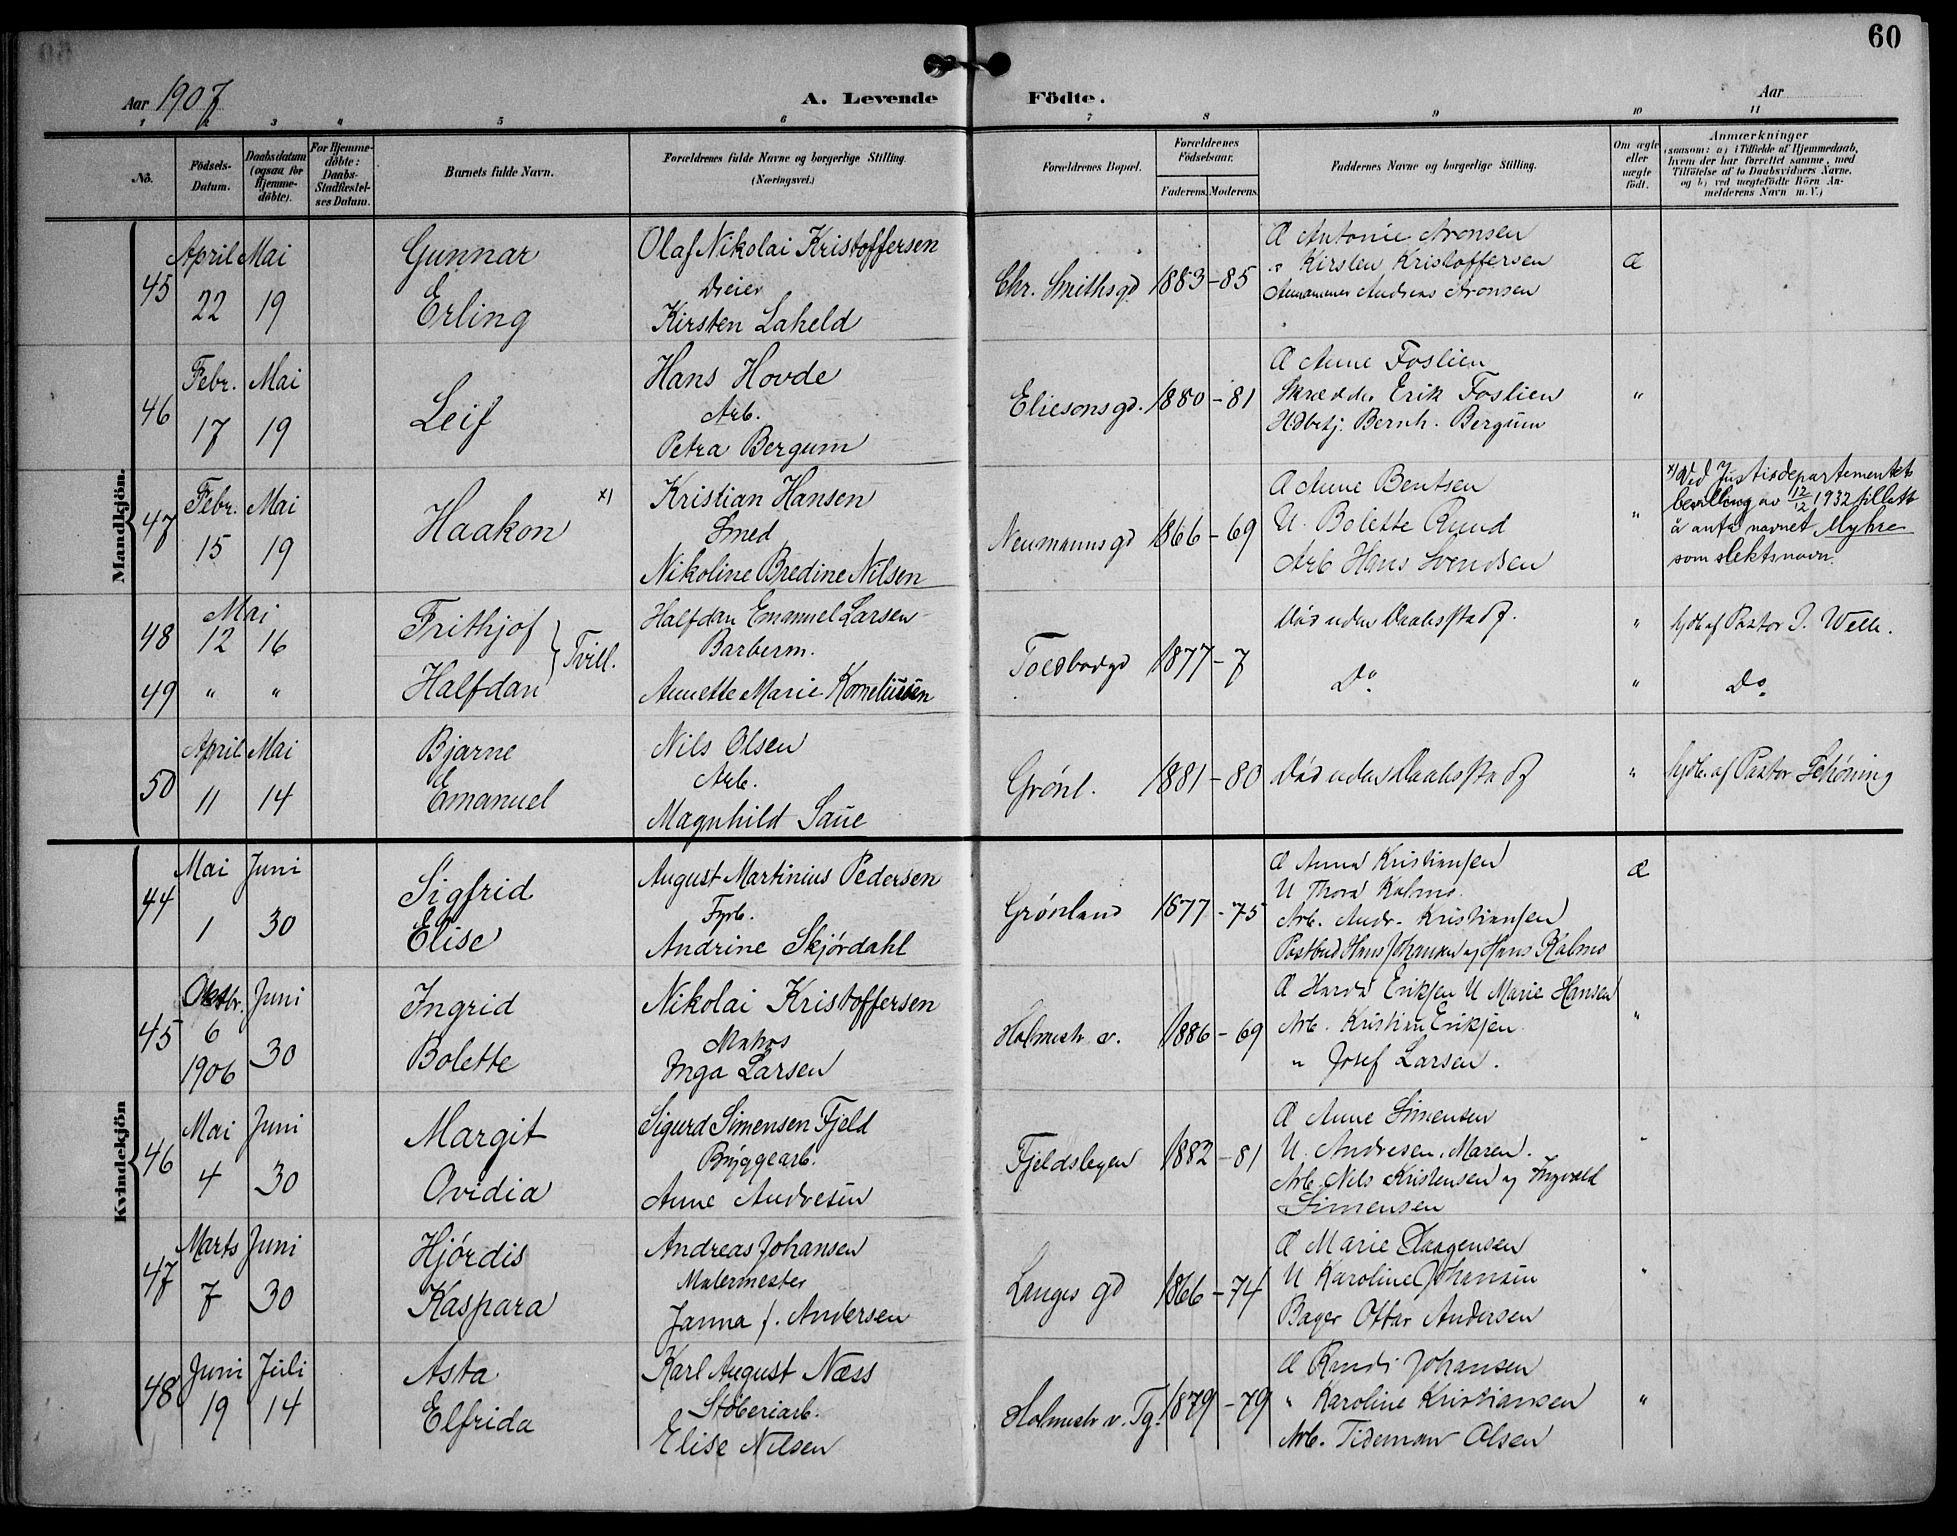 60
Aar 1907
A. Levende Födte.
Aar
1 2 3 4 5 6 7 8 9 10 11
No.
Födsels-Datum.
Daabsdatum (ogsaa for Hjemme-döbte).
For Hjemme-döbte: Daabs-Stadfæstel-ses Datum.
Barnets fulde Navn.
Forældrenes fulde Navne og borgerlige Stilling.
(Næringsvei.)
Forældrenes Bopæl.
Forældrenes Födselsaar.
Faderens. Moderens.
Faddernes Navne og borgerlige Stilling.
Om ægte eller uægte födt.
Anmærkninger
(saasom: a) i Tilfælde af Hjemmedaab,
hvem der har forrettet samme, med
Tilföielse af to Daabsvidners Navne,
og b) ved uægtefödte Börn An-
melderens Navn m. V.)
Mandkjön.
45
April 22
Mai 19
Gunnar
Erling
Olaf Nikolai Kristoffersen
Dreier
Kirsten Laheld
Chr. Smithsgd.
1883 - 85
Æ Antonie Aronsen
" Kirsten Kristoffersen
Andreas Aronsen
Æ
46
Febr. 17
Mai 19
Leif
Hans Hovde
Arb.
Petra Bergum
Eliesonsgd.
1880 - 81
Æ Anne Foslien
Skrædder Erik Foslien
Bernh. Bergum
"
47
Febr. 15
Mai 19
Haakon x)
Kristian Hansen
Smed
Nikoline Bredine Nilsen
Neumannsgd
1866 - 69
Æ Anne Bentsen
U. Bolette Rund
Arb Hans Svendsen
"
x) Ved Justisdepartementets
bevilling av 12/12 1932 tillatt
å anta navnet Myhre
som slektsnavn.
48
Mai
12 16
Frithjof
} Tvill.
Halfdan Emanuel Larsen
Barberm.
Annette Marie Korneliussen
Toldbodgd
1877 - 7
Død uden Daabsstadf.
"
hjdb. af Pastor I. Welle.
49
" "
Halfdan
Do
"
Do
50
April 11
Mai 14
Bjarne
Emanuel
Nils Olsen
Arb.
Magnhild Saue
Grønl.
1881 - 80
Død uden Daabsstadf
"
hjdb. af Pastor Schøning
Kvindekjön
44
Mai 1
Juni 30
Sigfrid
Elise
August Martinius Pedersen
Fyrb.
Andrine Skjørdahl
Grønland
1877 - 75
Æ Anna Kristiansen
U Thora Kalmo.
Arb. Andr. Kristiansen
Postbud Hans Johansen og Hans Kalmo
Æ
45
Oktbr. 6
1906
Juni 30
Ingrid
Bolette
Nikolai Kristoffersen
Matros
Inga Larsen
Holmestr v.
1886 - 69
Æ Harda Eriksen U Marie Hansen
Arb. Kristian Eriksen
" Josef Larsen.
"
46
Mai 4
Juni 30
Margit
Ovidia
Sigurd Simensen Fjeld
Bryggearb.
Anne Andresen
Fjeldsbyen
1882 - 81
Æ Anne Simensen
U. Andresen, Maren.
Arb. Nils Kristensen og Ingvald
Simensen
"
47
Marts 7
Juni 30
Hjørdis
Kaspara
Andreas Johansen
Malermester
Janna f. Andersen
Langes gd
1866 - 74
Æ Marie Haagensen
U Karoline Johansen
Bager Ottar Andersen
"
48
Juni 19
Juli 14
Asta
Elfrida
Karl August Næss
Støberiarb.
Elise Nilsen
Holmestr v. Tg.
1879 - 79
Æ Randi Johansen
" Karoline Kristiansen
Arb. Tideman Olsen
"